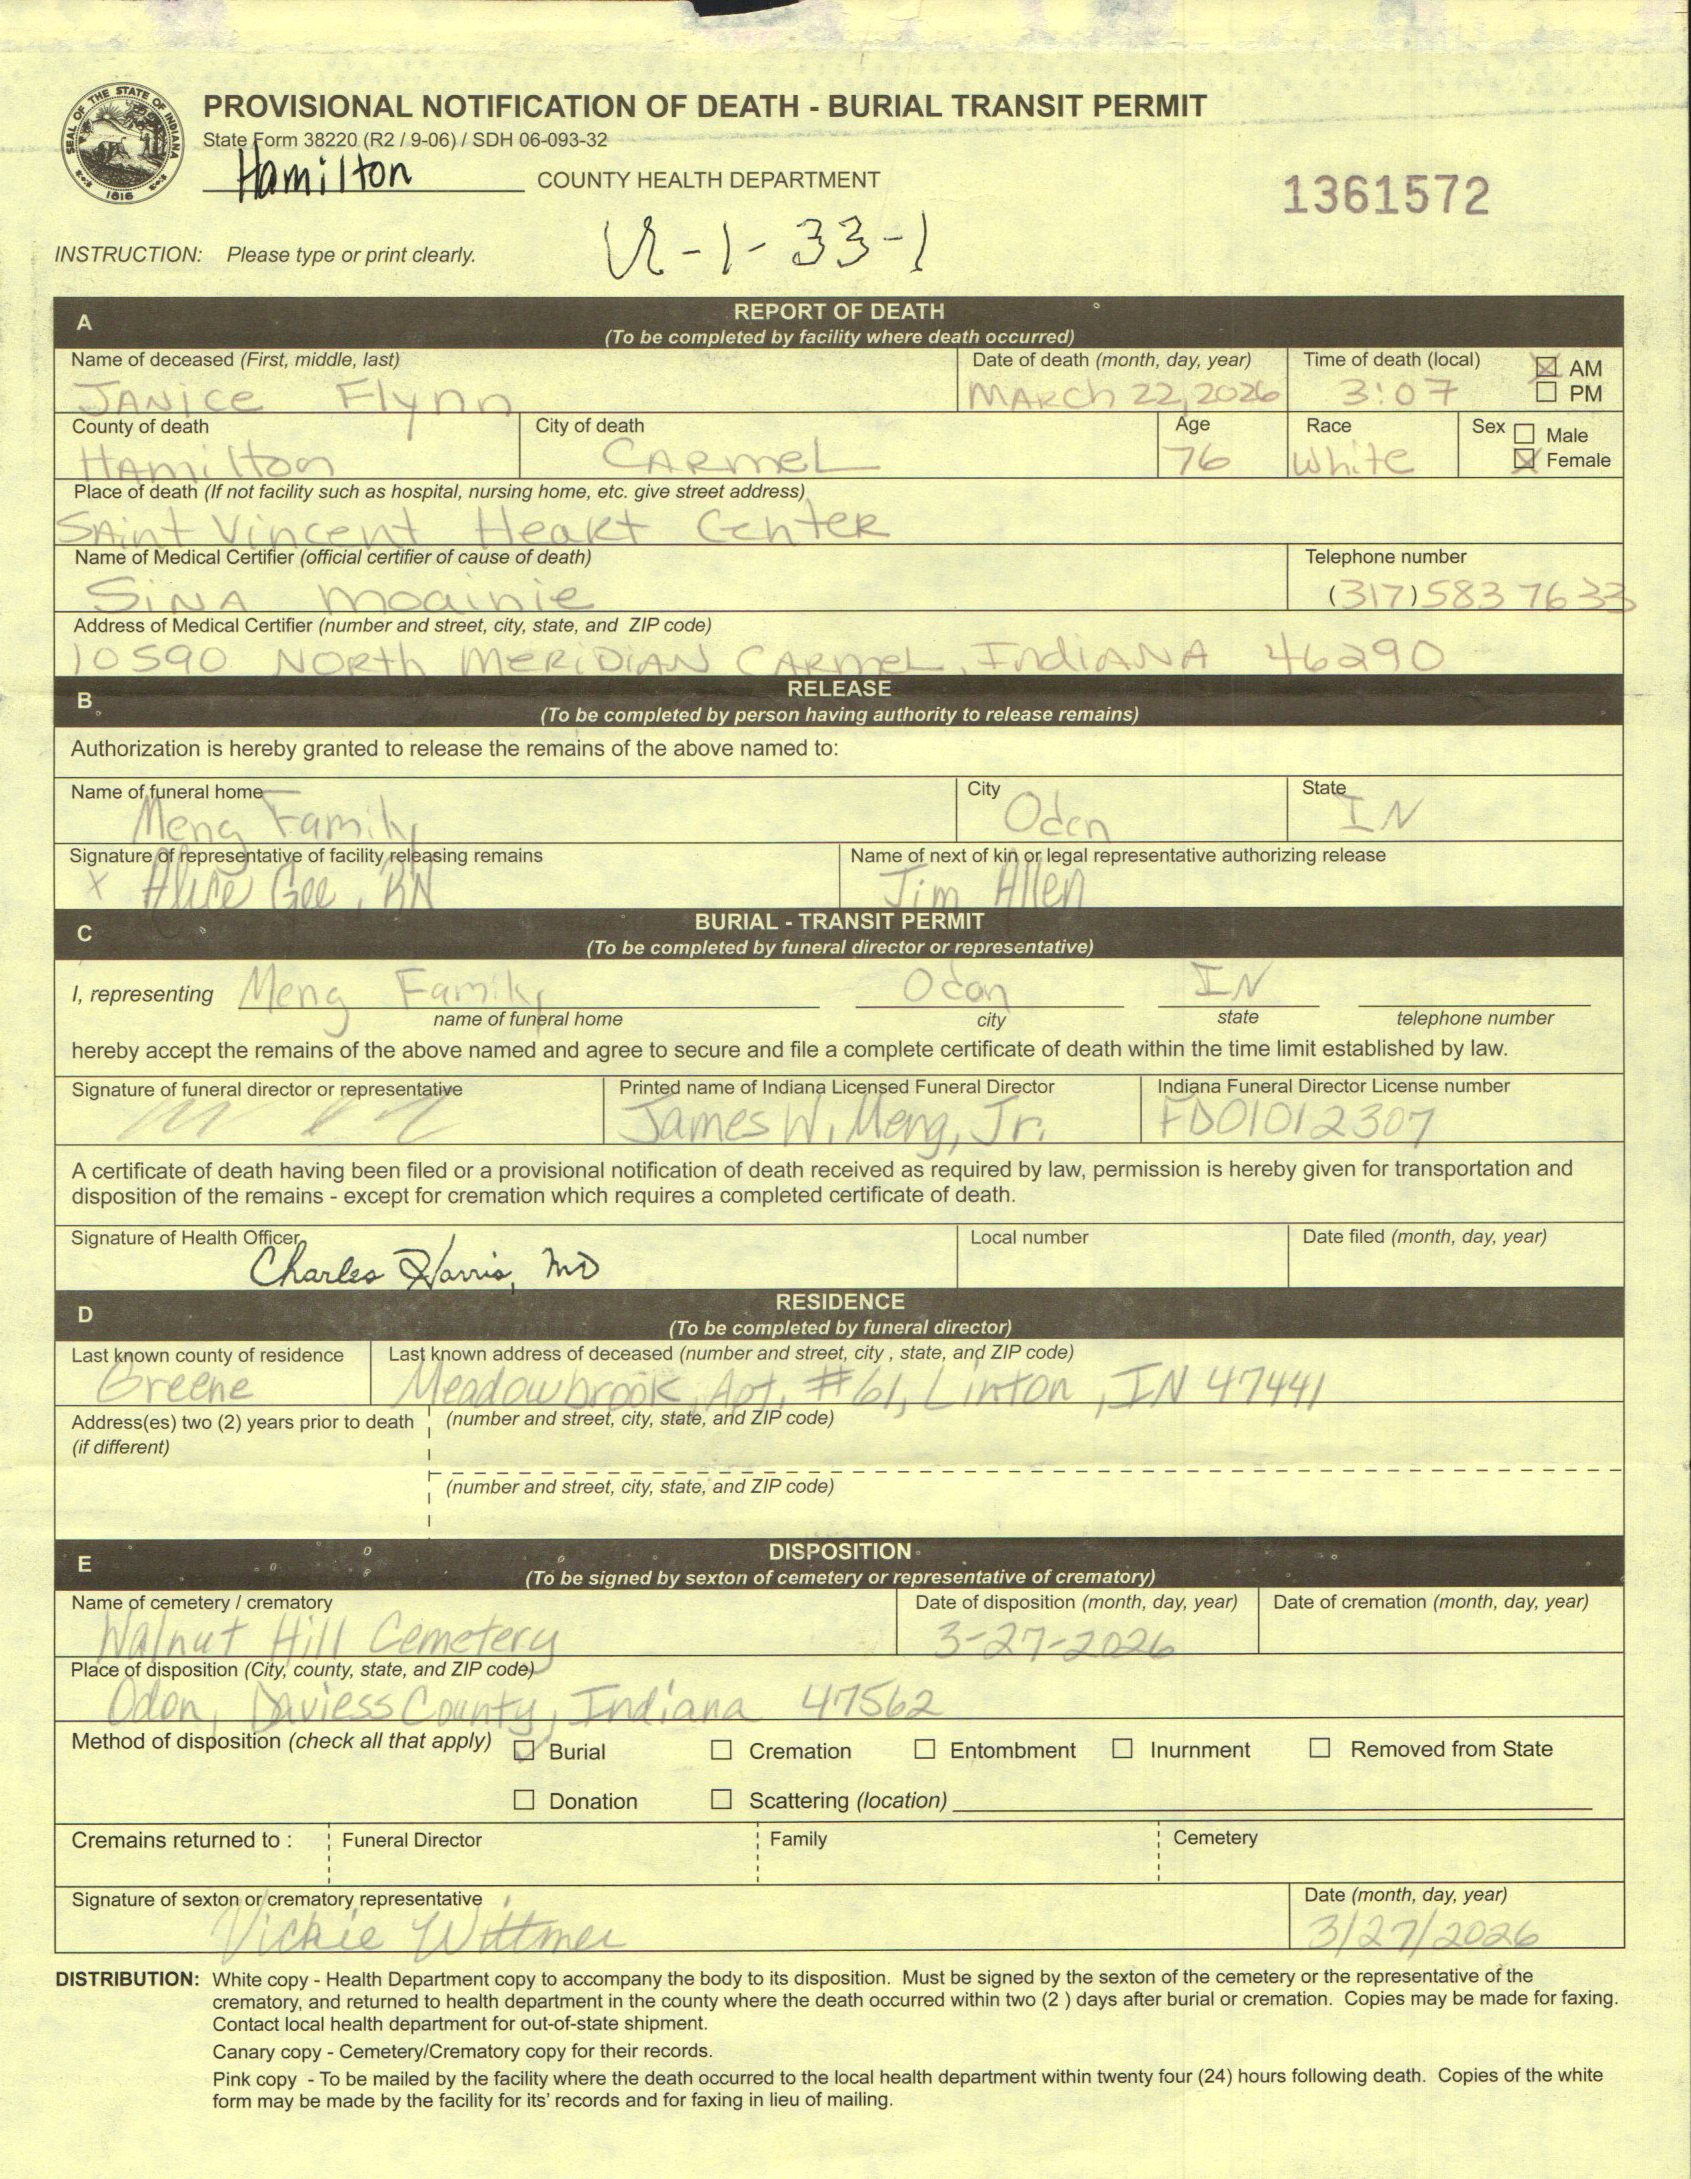 SEAL OF THE STATE OF INDIANA
1816
PROVISIONAL NOTIFICATION OF DEATH - BURIAL TRANSIT PERMIT
State Form 38220 (R2 / 9-06) / SDH 06-093-32
Hamilton COUNTY HEALTH DEPARTMENT
1361572
INSTRUCTION: Please type or print clearly.
-1-33-1
A REPORT OF DEATH
(To be completed by facility where death occurred)
Name of deceased (First, middle, last) Date of death (month, day, year) Time of death (local) AM
JANice Flynn MARch 22, 2026 3:07 PM
County of death City of death Age Race Sex Male
HAmilton CARmeL 76 White Female
Place of death (If not facility such as hospital, nursing home, etc. give street address)
SAint Vincent HeaRt CenteR
Name of Medical Certifier (official certifier of cause of death) Telephone number
SiNA moainie (317) 583 7633
Address of Medical Certifier (number and street, city, state, and ZIP code)
10590 NORth MERiDiAN CARmeL, IndiANA 46290
B RELEASE
(To be completed by person having authority to release remains)
Authorization is hereby granted to release the remains of the above named to:
Name of funeral home City State
Meng Family Odon IN
Signature of representative of facility releasing remains Name of next of kin or legal representative authorizing release
x Alice Gee, RN Jim Allen
C BURIAL - TRANSIT PERMIT
(To be completed by funeral director or representative)
I, representing Meng Family Odon IN
name of funeral home city state telephone number
hereby accept the remains of the above named and agree to secure and file a complete certificate of death within the time limit established by law.
Signature of funeral director or representative Printed name of Indiana Licensed Funeral Director Indiana Funeral Director License number
James W. Meng, Jr. FD01012307
A certificate of death having been filed or a provisional notification of death received as required by law, permission is hereby given for transportation and
disposition of the remains - except for cremation which requires a completed certificate of death.
Signature of Health Officer Local number Date filed (month, day, year)
Charles Harris, MD
D RESIDENCE
(To be completed by funeral director)
Last known county of residence Last known address of deceased (number and street, city , state, and ZIP code)
Greene Meadowbrook Apt. #61, Linton, IN 47441
Address(es) two (2) years prior to death (number and street, city, state, and ZIP code)
(if different)
(number and street, city, state, and ZIP code)
E DISPOSITION
(To be signed by sexton of cemetery or representative of crematory)
Name of cemetery / crematory Date of disposition (month, day, year) Date of cremation (month, day, year)
Walnut Hill Cemetery 3-27-2026
Place of disposition (City, county, state, and ZIP code)
Odon, Daviess County, Indiana 47562
Method of disposition (check all that apply) Burial Cremation Entombment Inurnment Removed from State
Donation Scattering (location)
Cremains returned to : Funeral Director Family Cemetery
Signature of sexton or crematory representative Date (month, day, year)
Vickie Wittmer 3/27/2026
DISTRIBUTION: White copy - Health Department copy to accompany the body to its disposition. Must be signed by the sexton of the cemetery or the representative of the
crematory, and returned to health department in the county where the death occurred within two (2 ) days after burial or cremation. Copies may be made for faxing.
Contact local health department for out-of-state shipment.
Canary copy - Cemetery/Crematory copy for their records.
Pink copy - To be mailed by the facility where the death occurred to the local health department within twenty four (24) hours following death. Copies of the white
form may be made by the facility for its' records and for faxing in lieu of mailing.